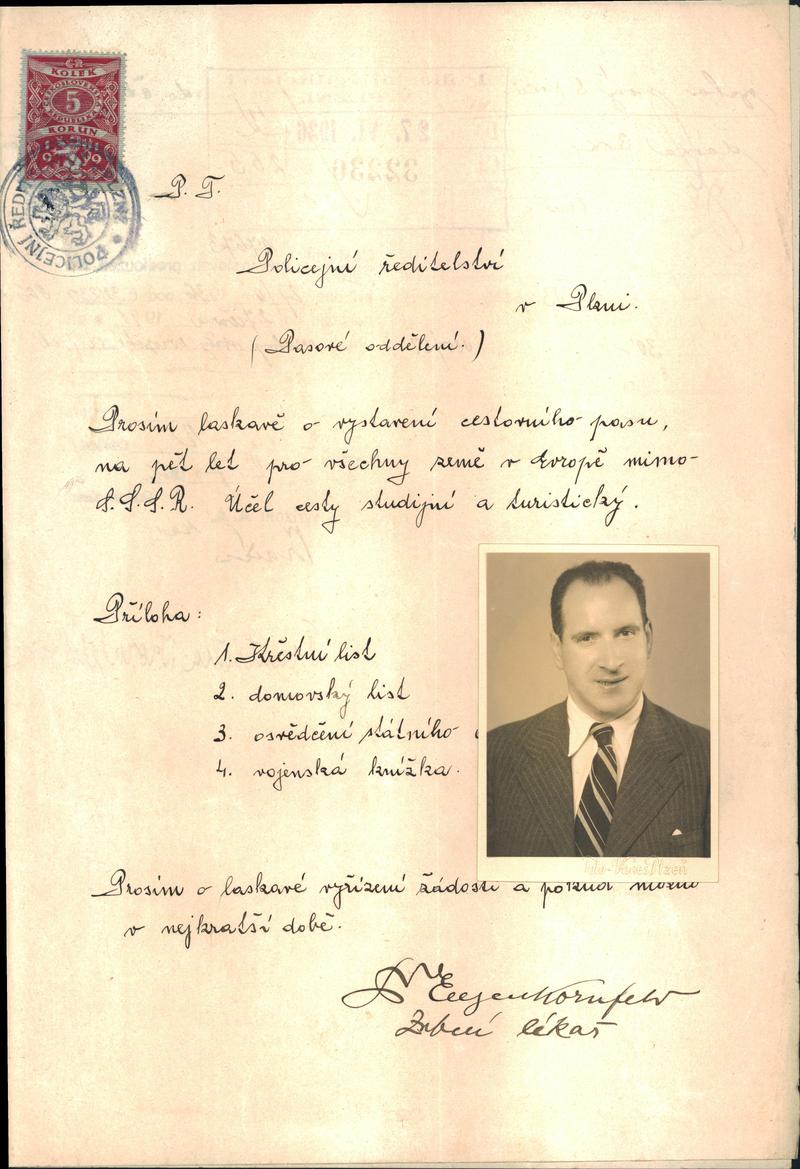 KOLEK
ČESKOSLOVENSKÁ
5
REPUBLIKA
KORUN
POLICEJNÍ ŘEDI
P. T.
Policejní ředitelství
v Plzni.
(Pasové oddělení.)
Prosím laskavě o vystavení cestovního pasu,
na pět let pro všechny země v Evropě mimo
S.S.S.R. Účel cesty studijní a turistický.
Příloha:
1. Křestní list
2. domovský list
3. osvědčení státního
4. vojenská knížka.
Prosím o laskavé vyřízení žádosti a pokud možno
v nejkratší době.
Dr Eugen Kornfeld
Zubní lékař